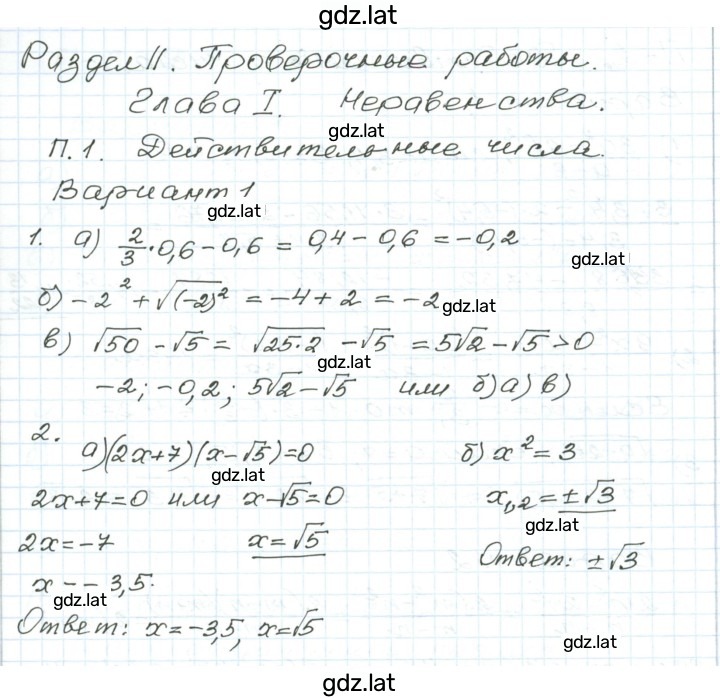 gdz.lat
Раздел II. Проверочные работы.
Глава I. Неравенства.
gdz.lat
П.1. Действительные числа.
Вариант 1
gdz.lat
1. а) 2/3 · 0,6 - 0,6 = 0,4 - 0,6 = -0,2
gdz.lat
б) -2² + √(-2)² = -4 + 2 = -2
gdz.lat
в) √50 - √5 = √25·2 - √5 = 5√2 - √5 > 0
gdz.lat
-2; -0,2; 5√2 - √5 или б) а) в)
2. а) (2x+7)(x-√5)=0 б) x² = 3
gdz.lat
2x+7=0 или x-√5=0 x₁,₂ = ±√3
gdz.lat
2x = -7 x = √5 Ответ: ±√3
x -- 3,5.
gdz.lat
Ответ: x = -3,5, x = √5
gdz.lat
gdz.lat